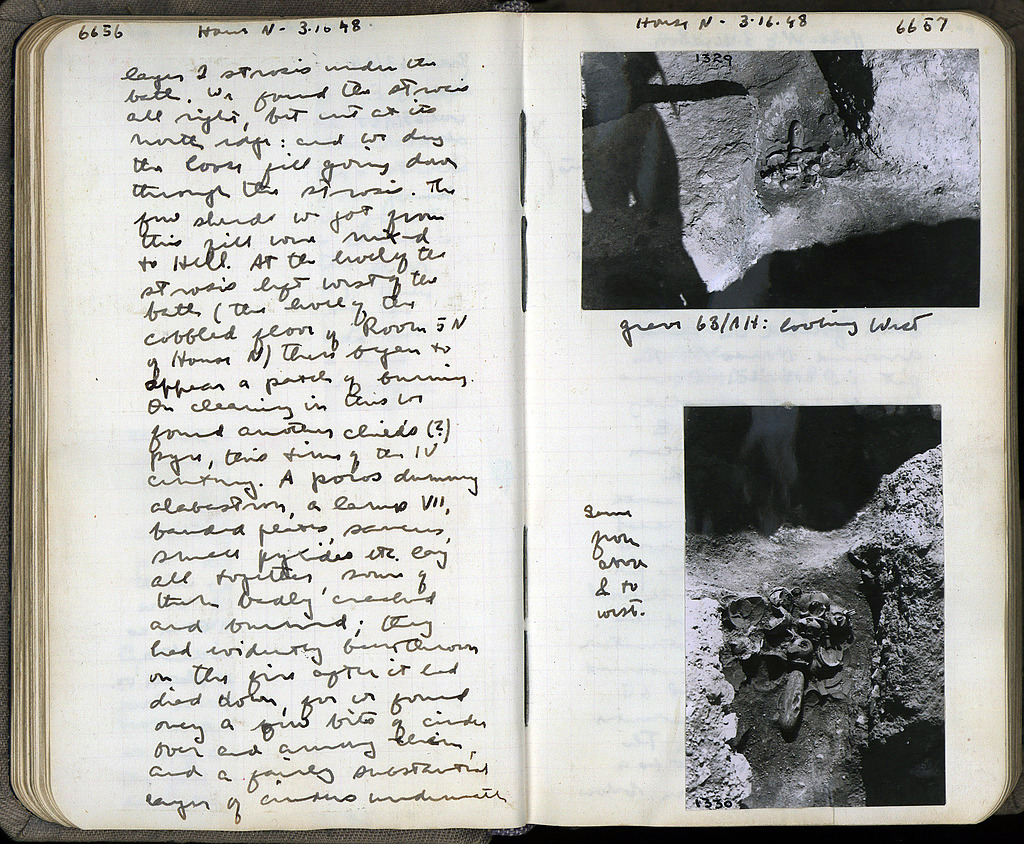 6656 House N - 3.16.48
layer 2 strosis under the
bath. We found the strosis
all right, but cut at its
north edge: and we dug
the loose fill going down
through the strosis. The
few sherds we got from
this fill were mixed
to Hell. At the level of the
strosis left west of the
bath (the level of the
cobbled floor of Room 5 N
of House N) there began to
appear a patch of burning.
On cleaning in this we
found another child's (?)
pyre, this time of the IV
century. A poros dummy
alabastron, a lamp VII,
banded plates, saucers,
small pyxides etc. lay
all together, some of
them badly cracked
and burned; they
had evidently been thrown
on the fire after it had
died down, for we found
only a few bits of cinder
over and among them,
and a fairly substantial
layer of cinders underneath
House N - 3.16.48 6657
1329
grave 68/ΛH: looking West
Same
from
above
& to
west.
1330